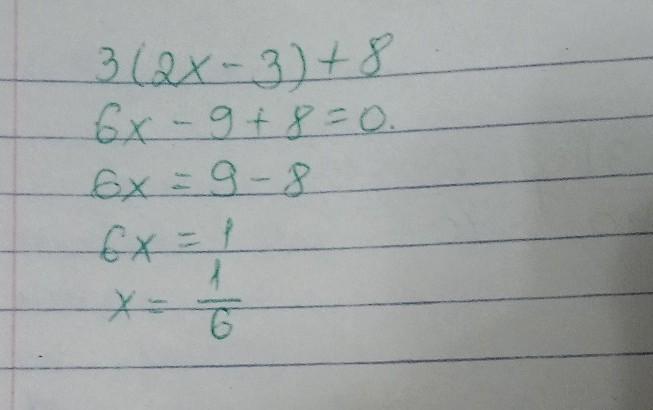 3(2x - 3) + 8
6x - 9 + 8 = 0.
6x = 9 - 8
6x = 1
x = 1/6